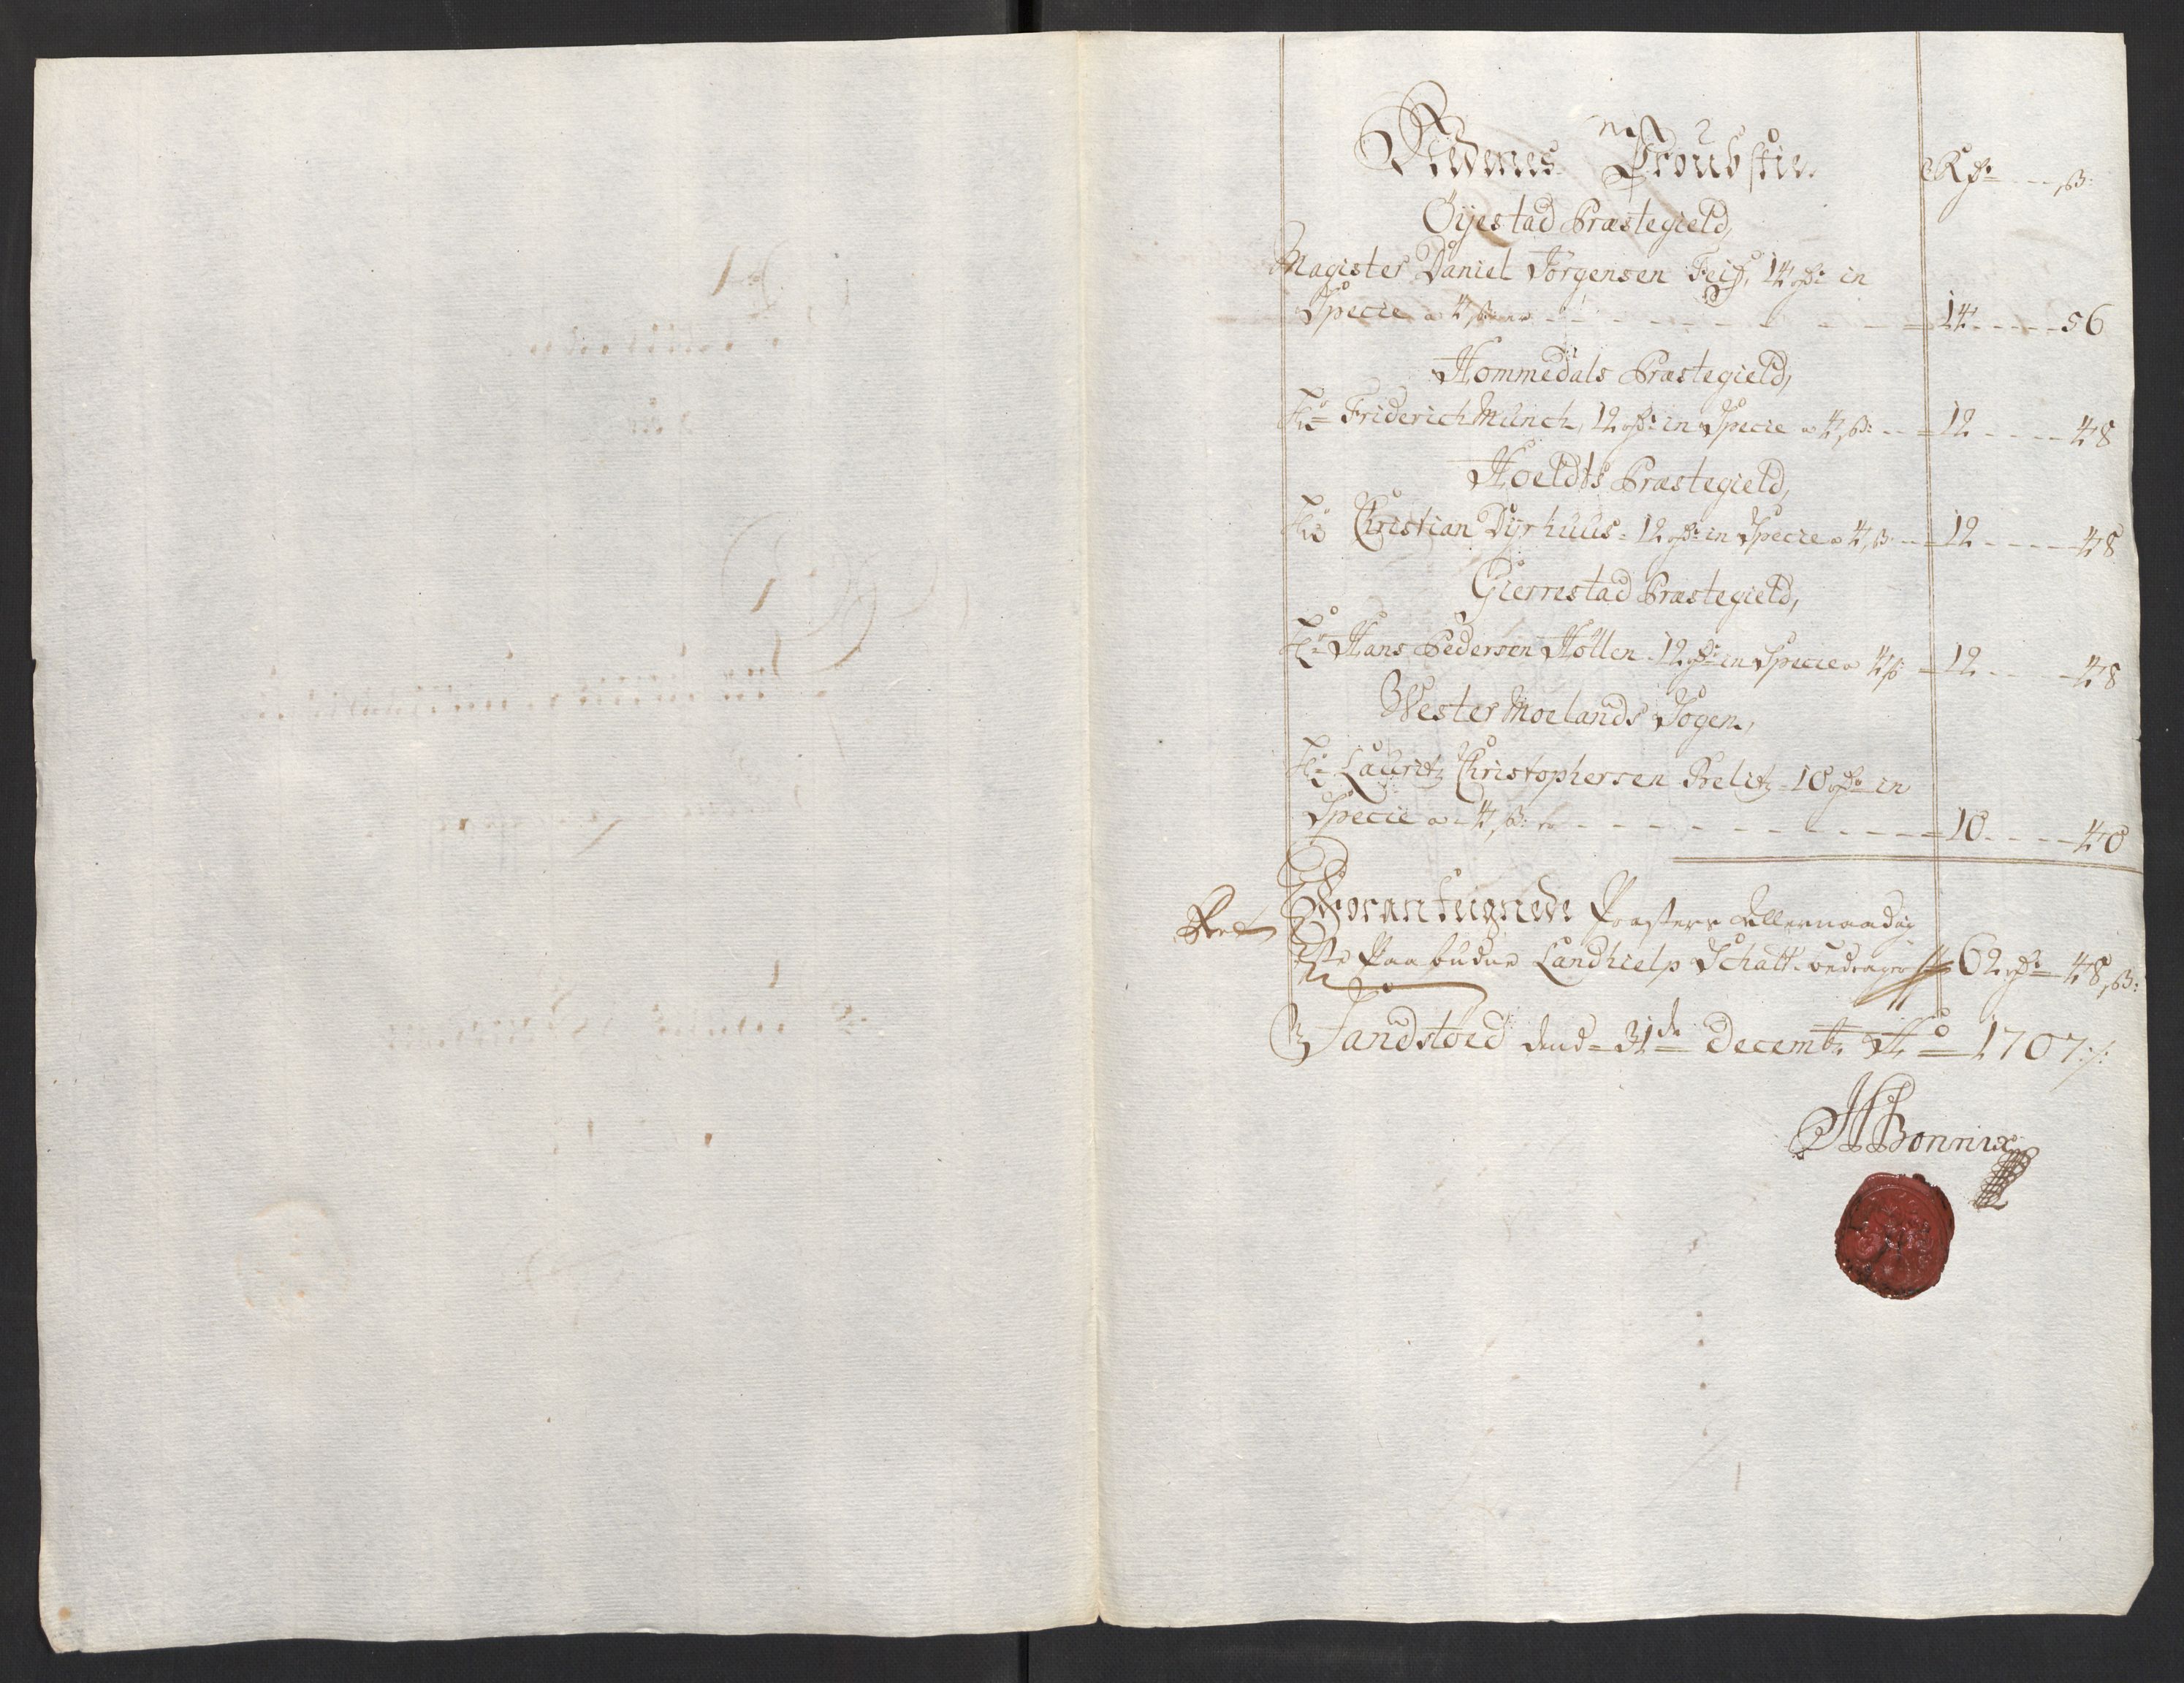 Nedenes Proubstie. Rdr ß:
Öyestad Præstegield,
Magister Daniel Jörgensen Feiff, 14 rdr in
Specie a 4 ß: er 14 56
Hommedals Præstegield,
Hr Friderich Münch, 12 rdr in Specie a 4 ß: 12 48
Hoeldts Præstegield,
Hr Christian Dyrhuus 12 rdr in Specie a 4 ß 12 48
Gierrestad Præstegield,
Hr Hans Pedersen Höllen 12 rdr in Specie a 4 ß 12 48
Wester Moelands Sogen,
Hr Lauritz Christophersen Brelitz 10 rdr in
Specie a 4 ß: er 10 40
Foranteignede Præsters Allernaadig
ste Paabudne Landhielp Schatt, bedrager 62 rdr 48 ß:
Sandstöed dend 31de Decembr Ao 1707 ./.